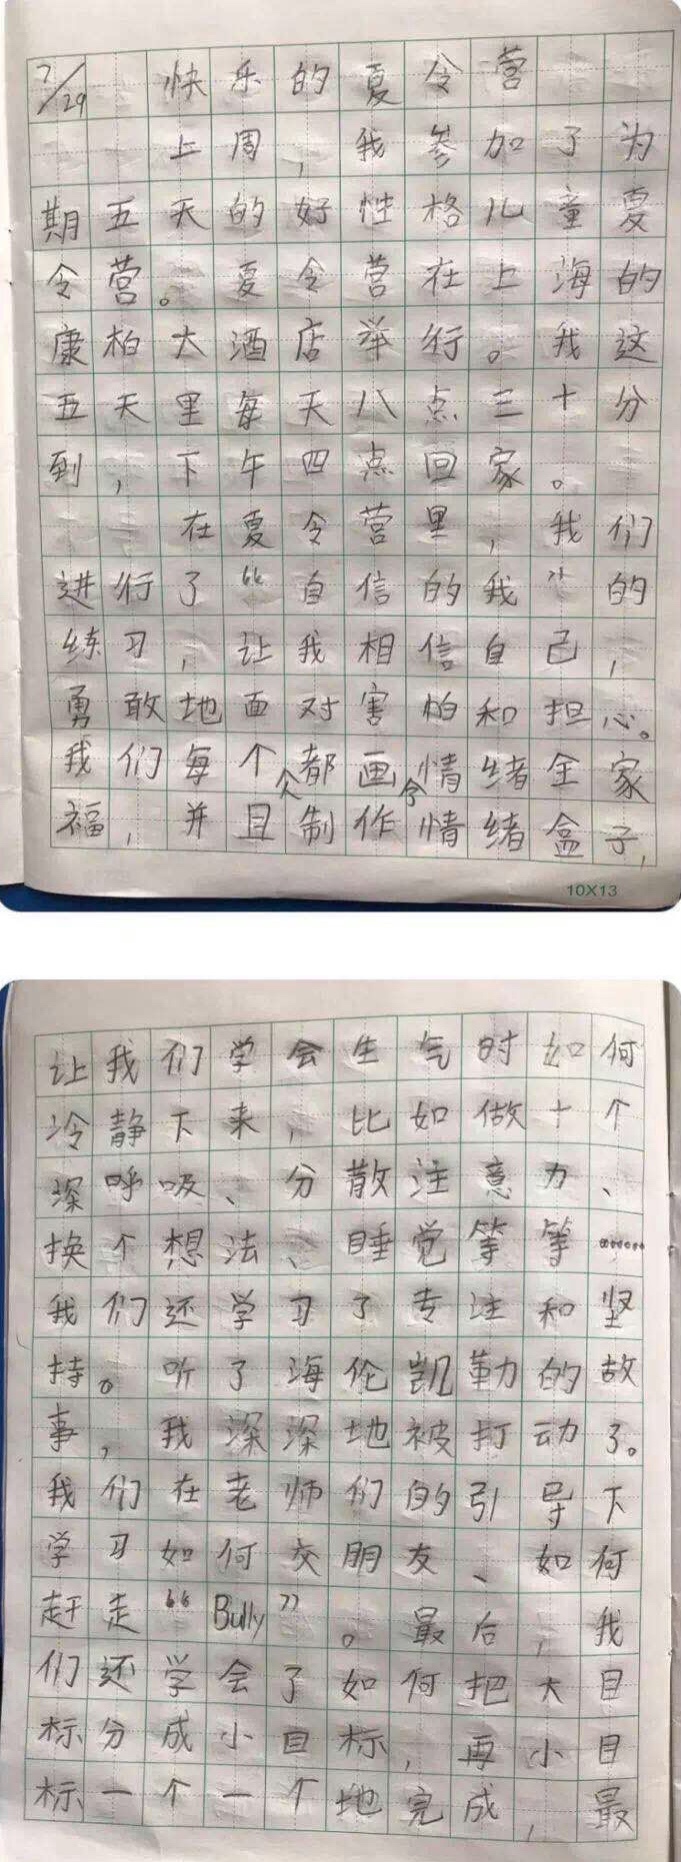 7/29 快乐的夏令营
上周，我参加了为
期五天的好性格儿童夏
令营。夏令营在上海的
康柏大酒店举行。我这
五天里每天八点三十分
到，下午四点回家。
在夏令营里，我们
进行了“自信的我”的
练习，让我相信自己，
勇敢地面对害怕和担心。
我们每个人都画了情绪全家
福，并且制作了情绪盒子，
10X13
让我们学会生气时如何
冷静下来，比如做十个
深呼吸、分散注意力、
换个想法、睡觉等等……
我们还学习了专注和坚
持。听了海伦凯勒的故
事，我深深地被打动了。
我们在老师们的引导下
学习如何交朋友、如何
赶走“Bully”。最后，我
们还学会了如何把大目
标分成小目标，再小目
标一个一个地完成，最